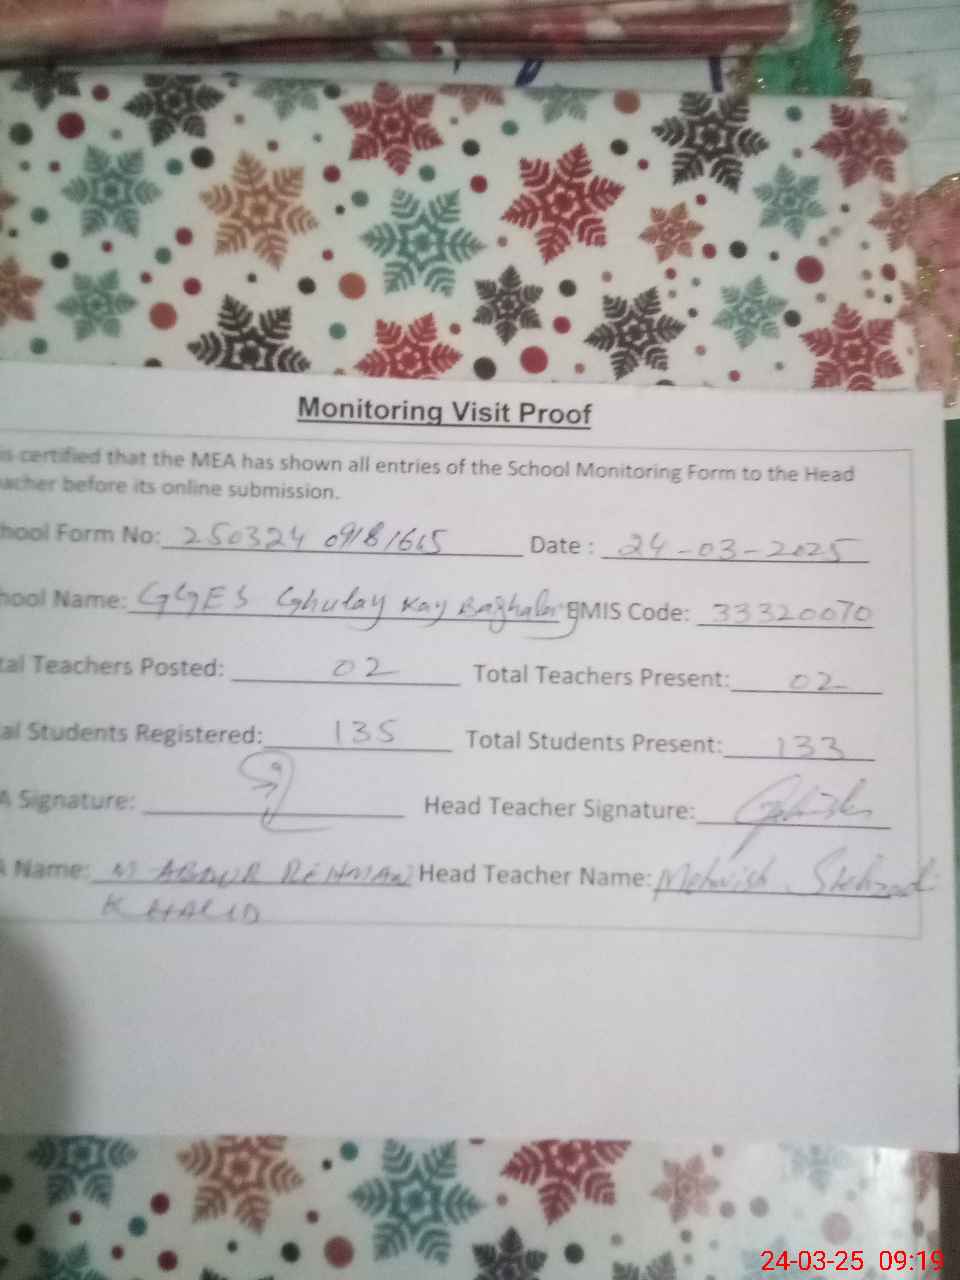 Monitoring Visit Proof
is certified that the MEA has shown all entries of the School Monitoring Form to the Head
acher before its online submission.
hool Form No: 250324 09181615 Date : 24-03-2025
hool Name: GGES Ghulay Kay EMIS Code: 33320070
tal Teachers Posted: 02 Total Teachers Present: 02
al Students Registered: 135 Total Students Present: 133
A Signature: Head Teacher Signature:
Name: M ABDUR REHMAN Head Teacher Name: Mehwish
KHALID
24-03-25 09:19